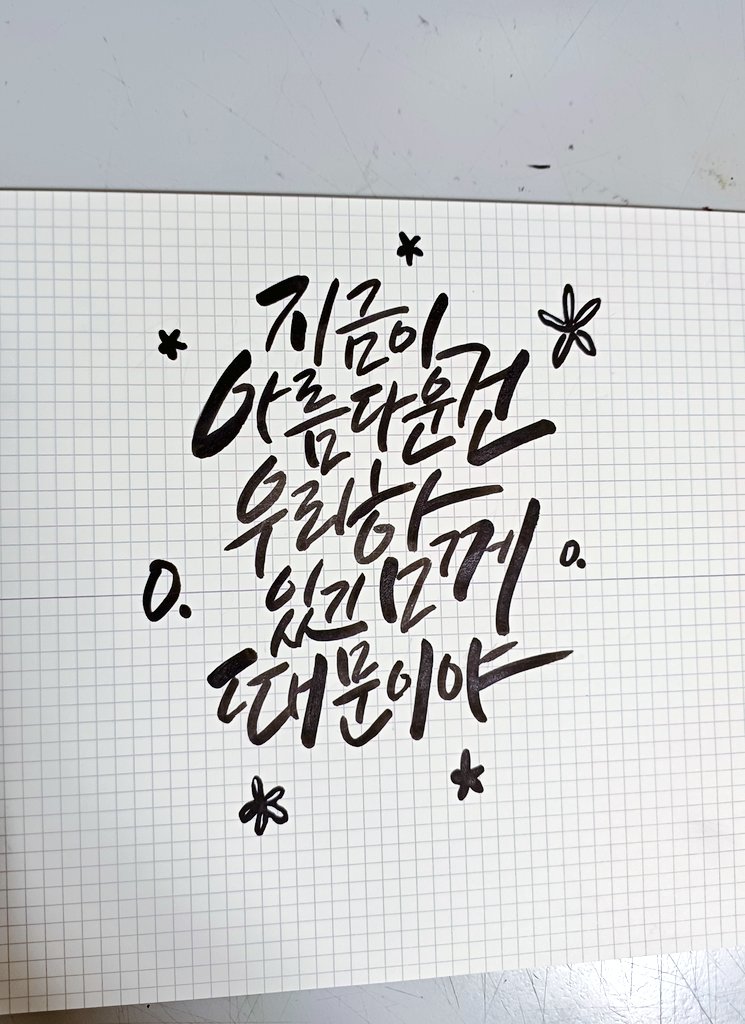 지금이
아름다운 건
우리 함께
있기
때문이야